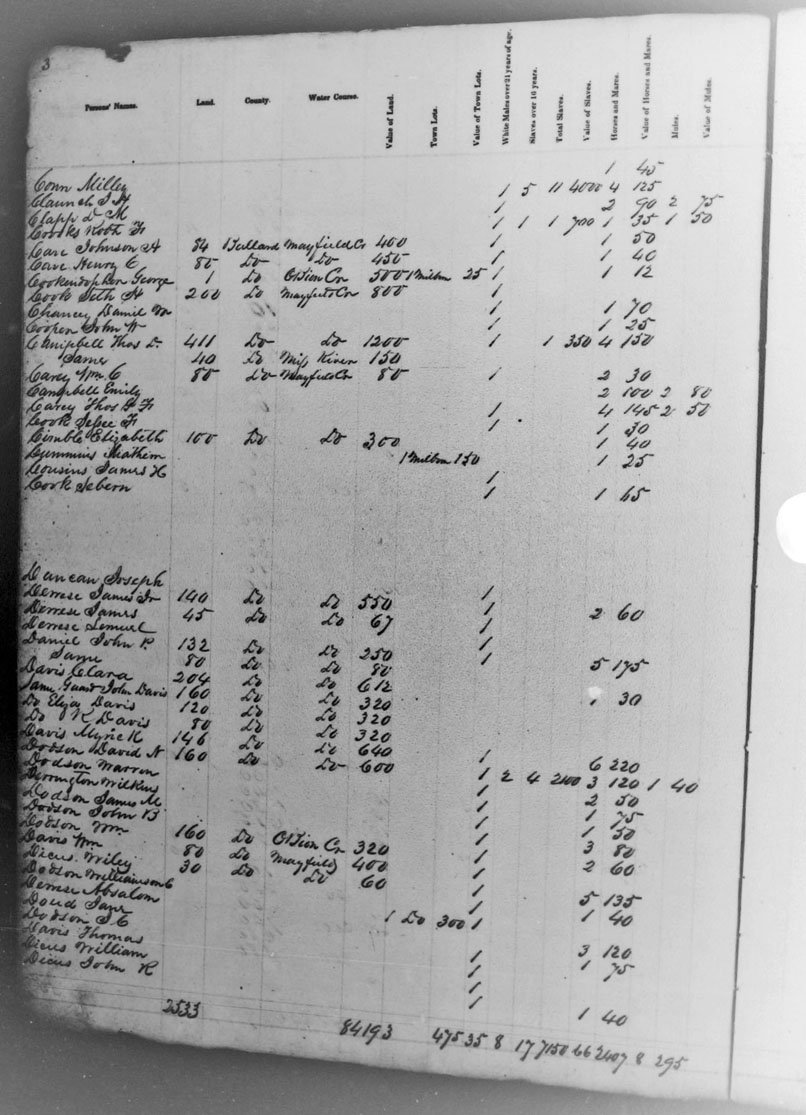 3
Persons' Names. Land. County. Water Course. Value of Land. Town Lots. Value of Town Lots. White Males over 21 years of age. Slaves over 16 years. Total Slaves. Value of Slaves. Horses and Mares. Value of Horses and Mares. Mules. Value of Mules.
Conn Milley 1 45
Claunch J H 1 5 11 4000 4 125
Clapp L M 1 2 90 2 75
Crooks Robt F 1 1 1 700 1 35 1 50
Carr Johnson A 84 Mayfield Cr 400 1 1 50
Carr Henry C 80 Do Do 450 1 1 40
George 1 Do Obion Cr 500 1 Milbrn 25 1 1 12
Cook Seth H 200 Do Mayfield Cr 800 1
Chancey Daniel 1 1 70
Cooper John W 1 1 25
Campbell Thos L. 411 Do Do 1200 1 1 350 4 150
Same 40 Do Miss River 150
Carey Wm C 80 Do Mayfield Cr 80 1 2 30
Campbell Emily 2 100 2 80
Carey Thos G F 1 4 145 2 50
Cook Jesse F 1 1 30
Cimble Elizabeth 100 Do Do 300 1 40
Cummins 1 Milbrn 150 1 25
Cousins James H 1
Cook Sebern 1 1 65
Duncan Joseph
Derrese James Jr 140 Do Do 550 1
Derrese James 45 Do Do 67 1 2 60
Derrese Lemuel 1
Daniel John P. 132 Do Do 250 1
Same 80 Do Do 80 1 5 175
Davis Clara 204 Do Do 612
Same Guard John Davis 160 Do Do 320 1 30
Do Elijay Davis 120 Do Do 320
Do K Davis 80 Do Do 320
Davis Myric K 146 Do Do 640
Dodson David N 160 Do Do 600 1 6 220
Dodson Warren 1 2 4 2100 3 120 1 40
Derrington Wilkins 1 2 50
Dodson James M 1 1 75
Dodson John B 1 1 50
Dodson Wm 160 Do Obion Cr 320 1 3 80
Davis Wm 80 Do Mayfield 400 1 2 60
Dicus Wiley 30 Do Do 60 1
Dodson Williamson C 1 5 135
Derrese Absalom 1 40
Doud Jane 1 Do 300 1
Dodson J C
Davis Thomas 1 3 120
Dicus William 1 1 75
Dicus John R 1
1 1 40
2533 84193 475 35 8 17 7150 66 2407 8 295